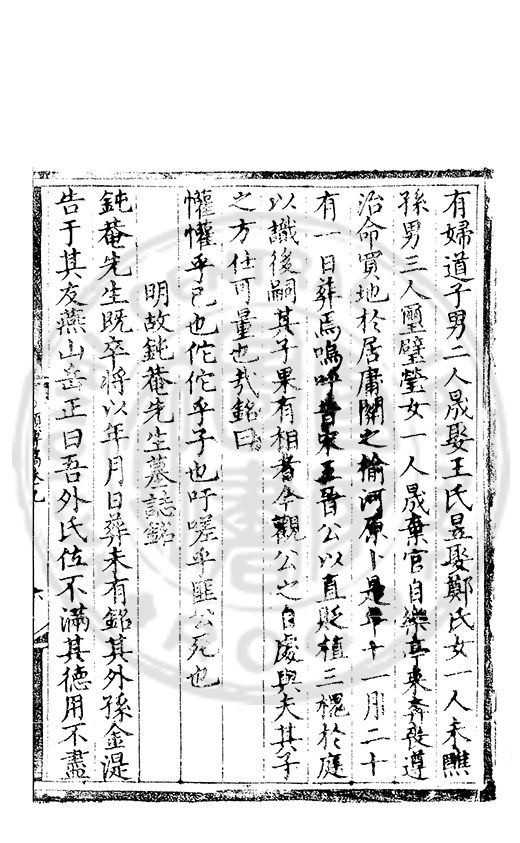 有婦道子男二人晟娶王氏昱娶鄭氏女一人未醮
孫男三人璽璧瑩女一人晟棄官自樂亭來奔喪遵
治命買地於居庸關之榆河原卜是年十一月二十
有一日葬焉嗚呼昔宋王晉公以直貶植三槐於庭
以識後嗣其子果有相者今觀公之自處與夫其子
之方仕可量也哉銘曰
懽懽乎已也佗佗乎子也吁嗟乎匪公死也
明故鈍菴先生墓誌銘
鈍菴先生既卒將以年月日葬未有銘其外孫金湜
告于其友燕山岳正曰吾外氏位不滿其德用不盡
類博稿卷九
六